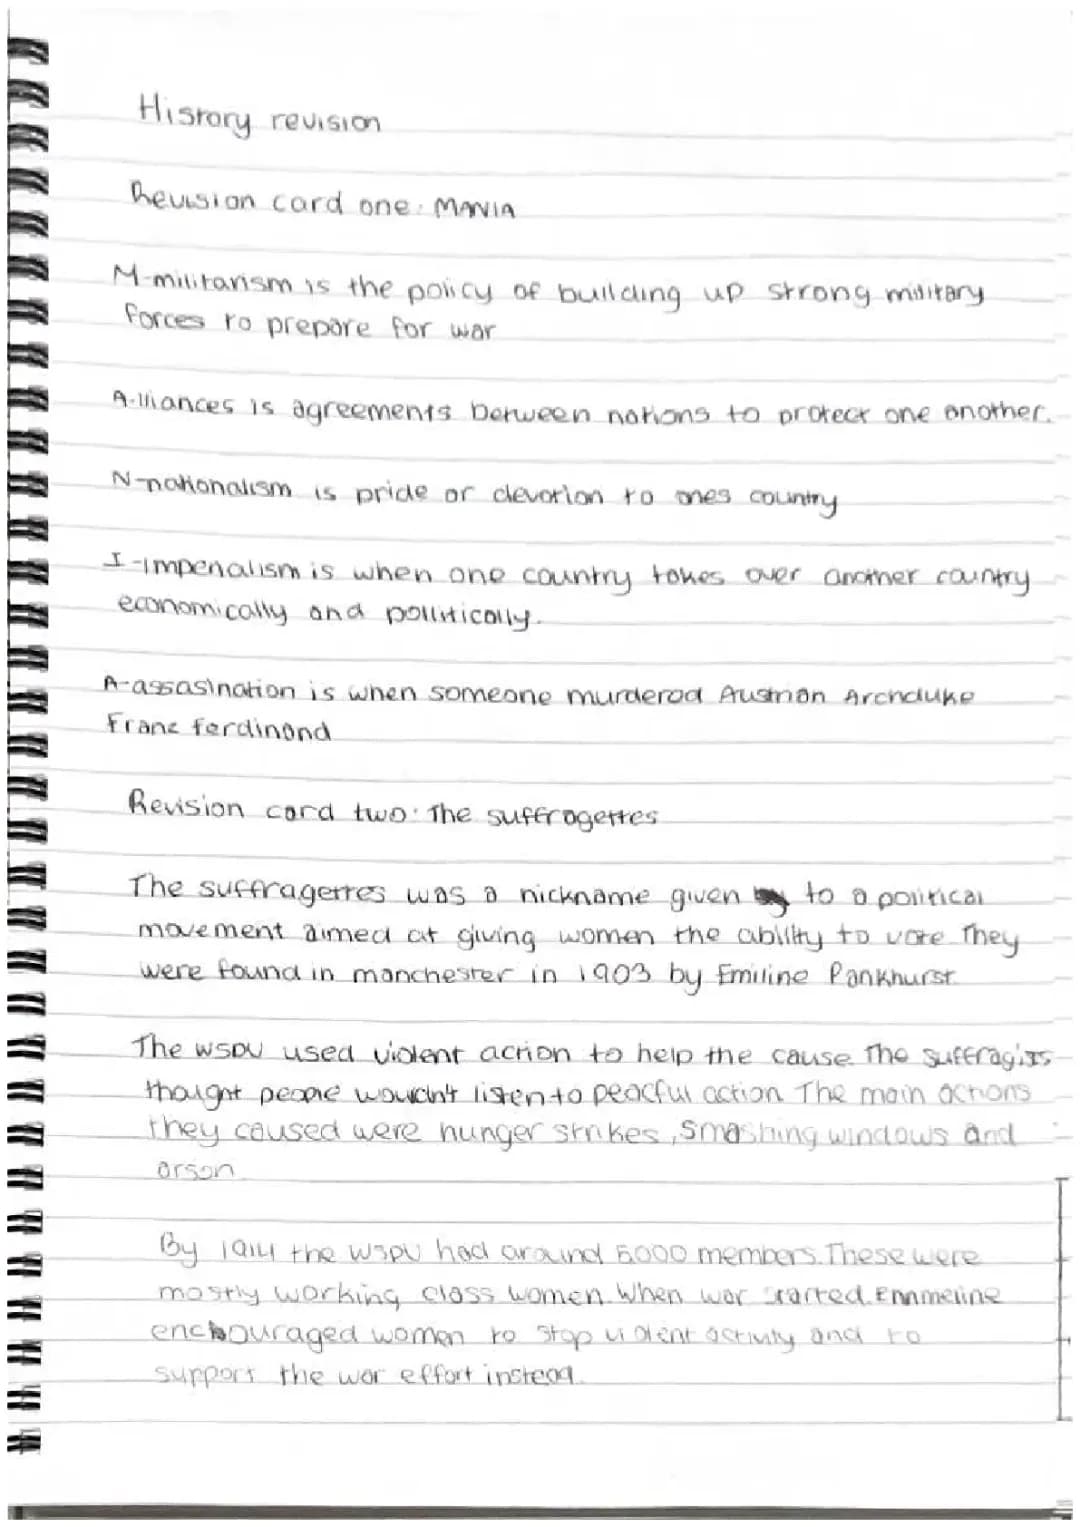 History revision
Revision card one: MANIA
M-militarism is the policy of building up strong military
forces to prepare for war
A-lliances is agreements between nations to protect one another.
N-nationalism is pride or devotion to ones country
I-imperialism is when one country takes over another country
economically and pollitically.
A-assasination is when someone murdered Austrian Archduke
Franz ferdinand
Revision card two: The suffragettes
The suffragettes was a nickname given to a political
movement aimed at giving women the ability to vote They
were found in manchester in 1903 by Emiline Pankhurst
The WSPU used violent action to help the cause. The suffragists
thought people wouldn't listen to peacful action The main actions
they caused were hunger strikes, smashing windows and
arson
By 1914 the WSPU had around 5000 members. These were
mostly working class women. When war started. Emmeline
encouraged women to stop violent activity and to
support the war effort instead.